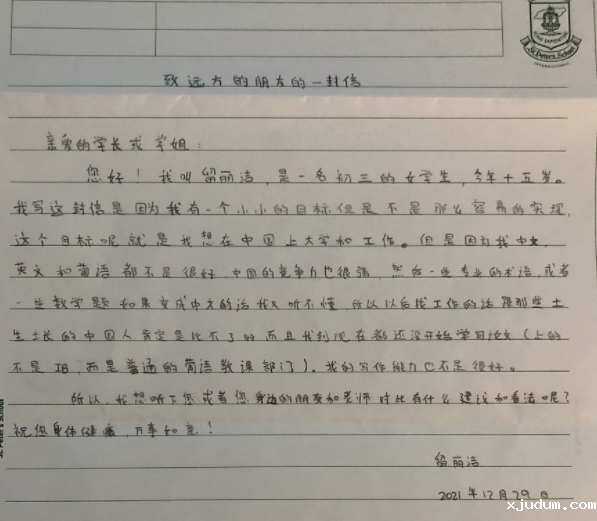 St. Peter's School
致远方的朋友的一封信
亲爱的学长或学姐：
您好！我叫留丽洁，是一名初三的女学生，今年十五岁。
我写这封信是因为我有一个小小的目标但是不是那么容易的实现，
这个目标呢就是我想在中国上大学和工作。但是因为我中文，
英文和葡语都不是很好，中国的竞争力也很强，然后一些专业的术语，或者
一些数学题如果变成中文的话我又听不懂，所以以后找工作的话跟那些土
生土长的中国人肯定是比不了的而且我到现在都还没开始学习论文（上的
不是IB，而是普通的葡语教课部门）。我的写作能力也不是很好。
所以，我想听下您或者您身边的朋友和老师对此有什么建议和看法呢？
祝您身体健康，万事如意！
留丽洁
2021年12月29日
St. Peter's School
xjudum.com